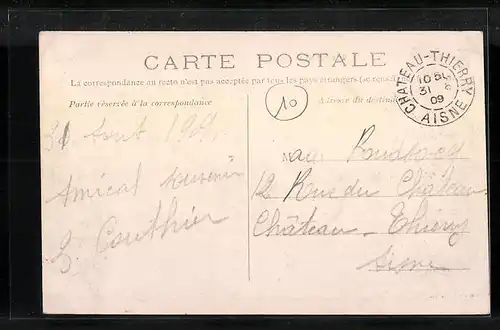 CARTE POSTALE
La correspondance au recto n'est pas acceptée par tous les pays étrangers (se rens
Partie réservée à la correspondance
Adresse du destina
10
CHATEAU-THIERRY
31 8
09
AISNE
31 Aout 1909
Amical souvenir
G. Gouthier
12 Rue du Château
Château-Thierry
Aisne